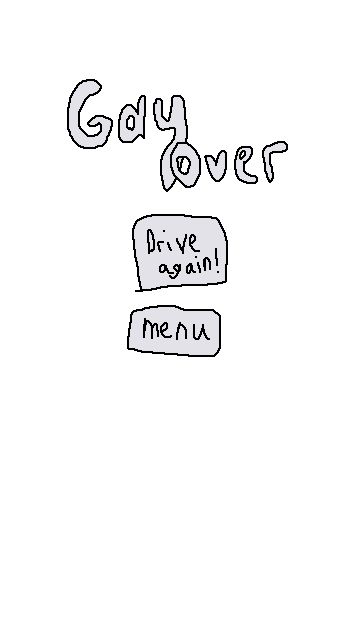 Gay
lover
Drive
again!
menu